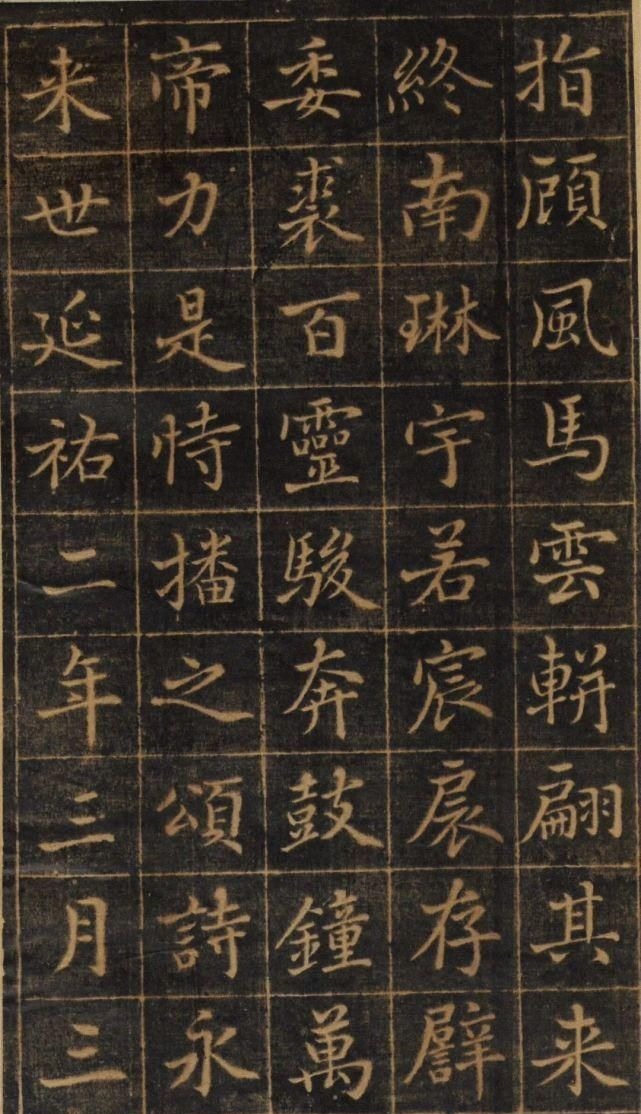 指頋風馬雲軿翩其来
終南琳宇若宸扆存譬
委裘百靈駿奔鼓鐘萬
帝力是時播之頌詩永
来世延祐二年三月三